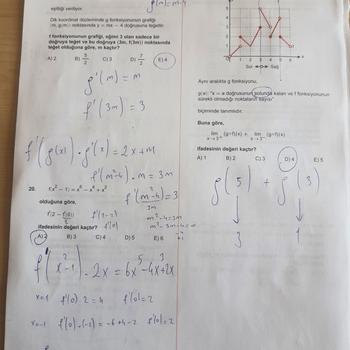 eşitliği veriliyor.
g(m)=m-4
Dik koordinat düzleminde g fonksiyonunun grafiği
(m, g(m)) noktasında y = mx - 4 doğrusuna teğettir.
f fonksiyonunun grafiği, eğimi 3 olan sadece bir
doğruya teğet ve bu doğruya (3m, f(3m)) noktasında
teğet olduğuna göre, m kaçtır?
A) 2 B) 5/2 C) 3 D) 7/2 E) 4
g'(m) = m
f'(3m) = 3
f'(g(x)).g'(x) = 2x+m
f'(m²-4).m = 3m
f'(m²-4)=3
3m
m²-4=3m
m²-3m-4=0
20. f(x² - 1) = x⁶ - x⁴ + x²
olduğuna göre,
ifadesinin değeri kaçtır?
f'(0)
A) 2 B) 3 C) 4 D) 5 E) 6
f'(x²-1).2x = 6x⁵-4x³+2x
x=1 f'(0).2=4 f'(0)=2
x=-1 f'(0).(-2)=-6+4-2 f'(0)=2
Sol Sağ
Aynı aralıkta g fonksiyonu,
g(a): "x = a doğrusunun solunda kalan ve f fonksiyonunun
sürekli olmadığı noktaların sayısı"
biçiminde tanımlıdır.
Buna göre,
ifadesinin değeri kaçtır?
A) 1 B) 2 C) 3 D) 4 E) 5
g(5) + g(3)
3 1